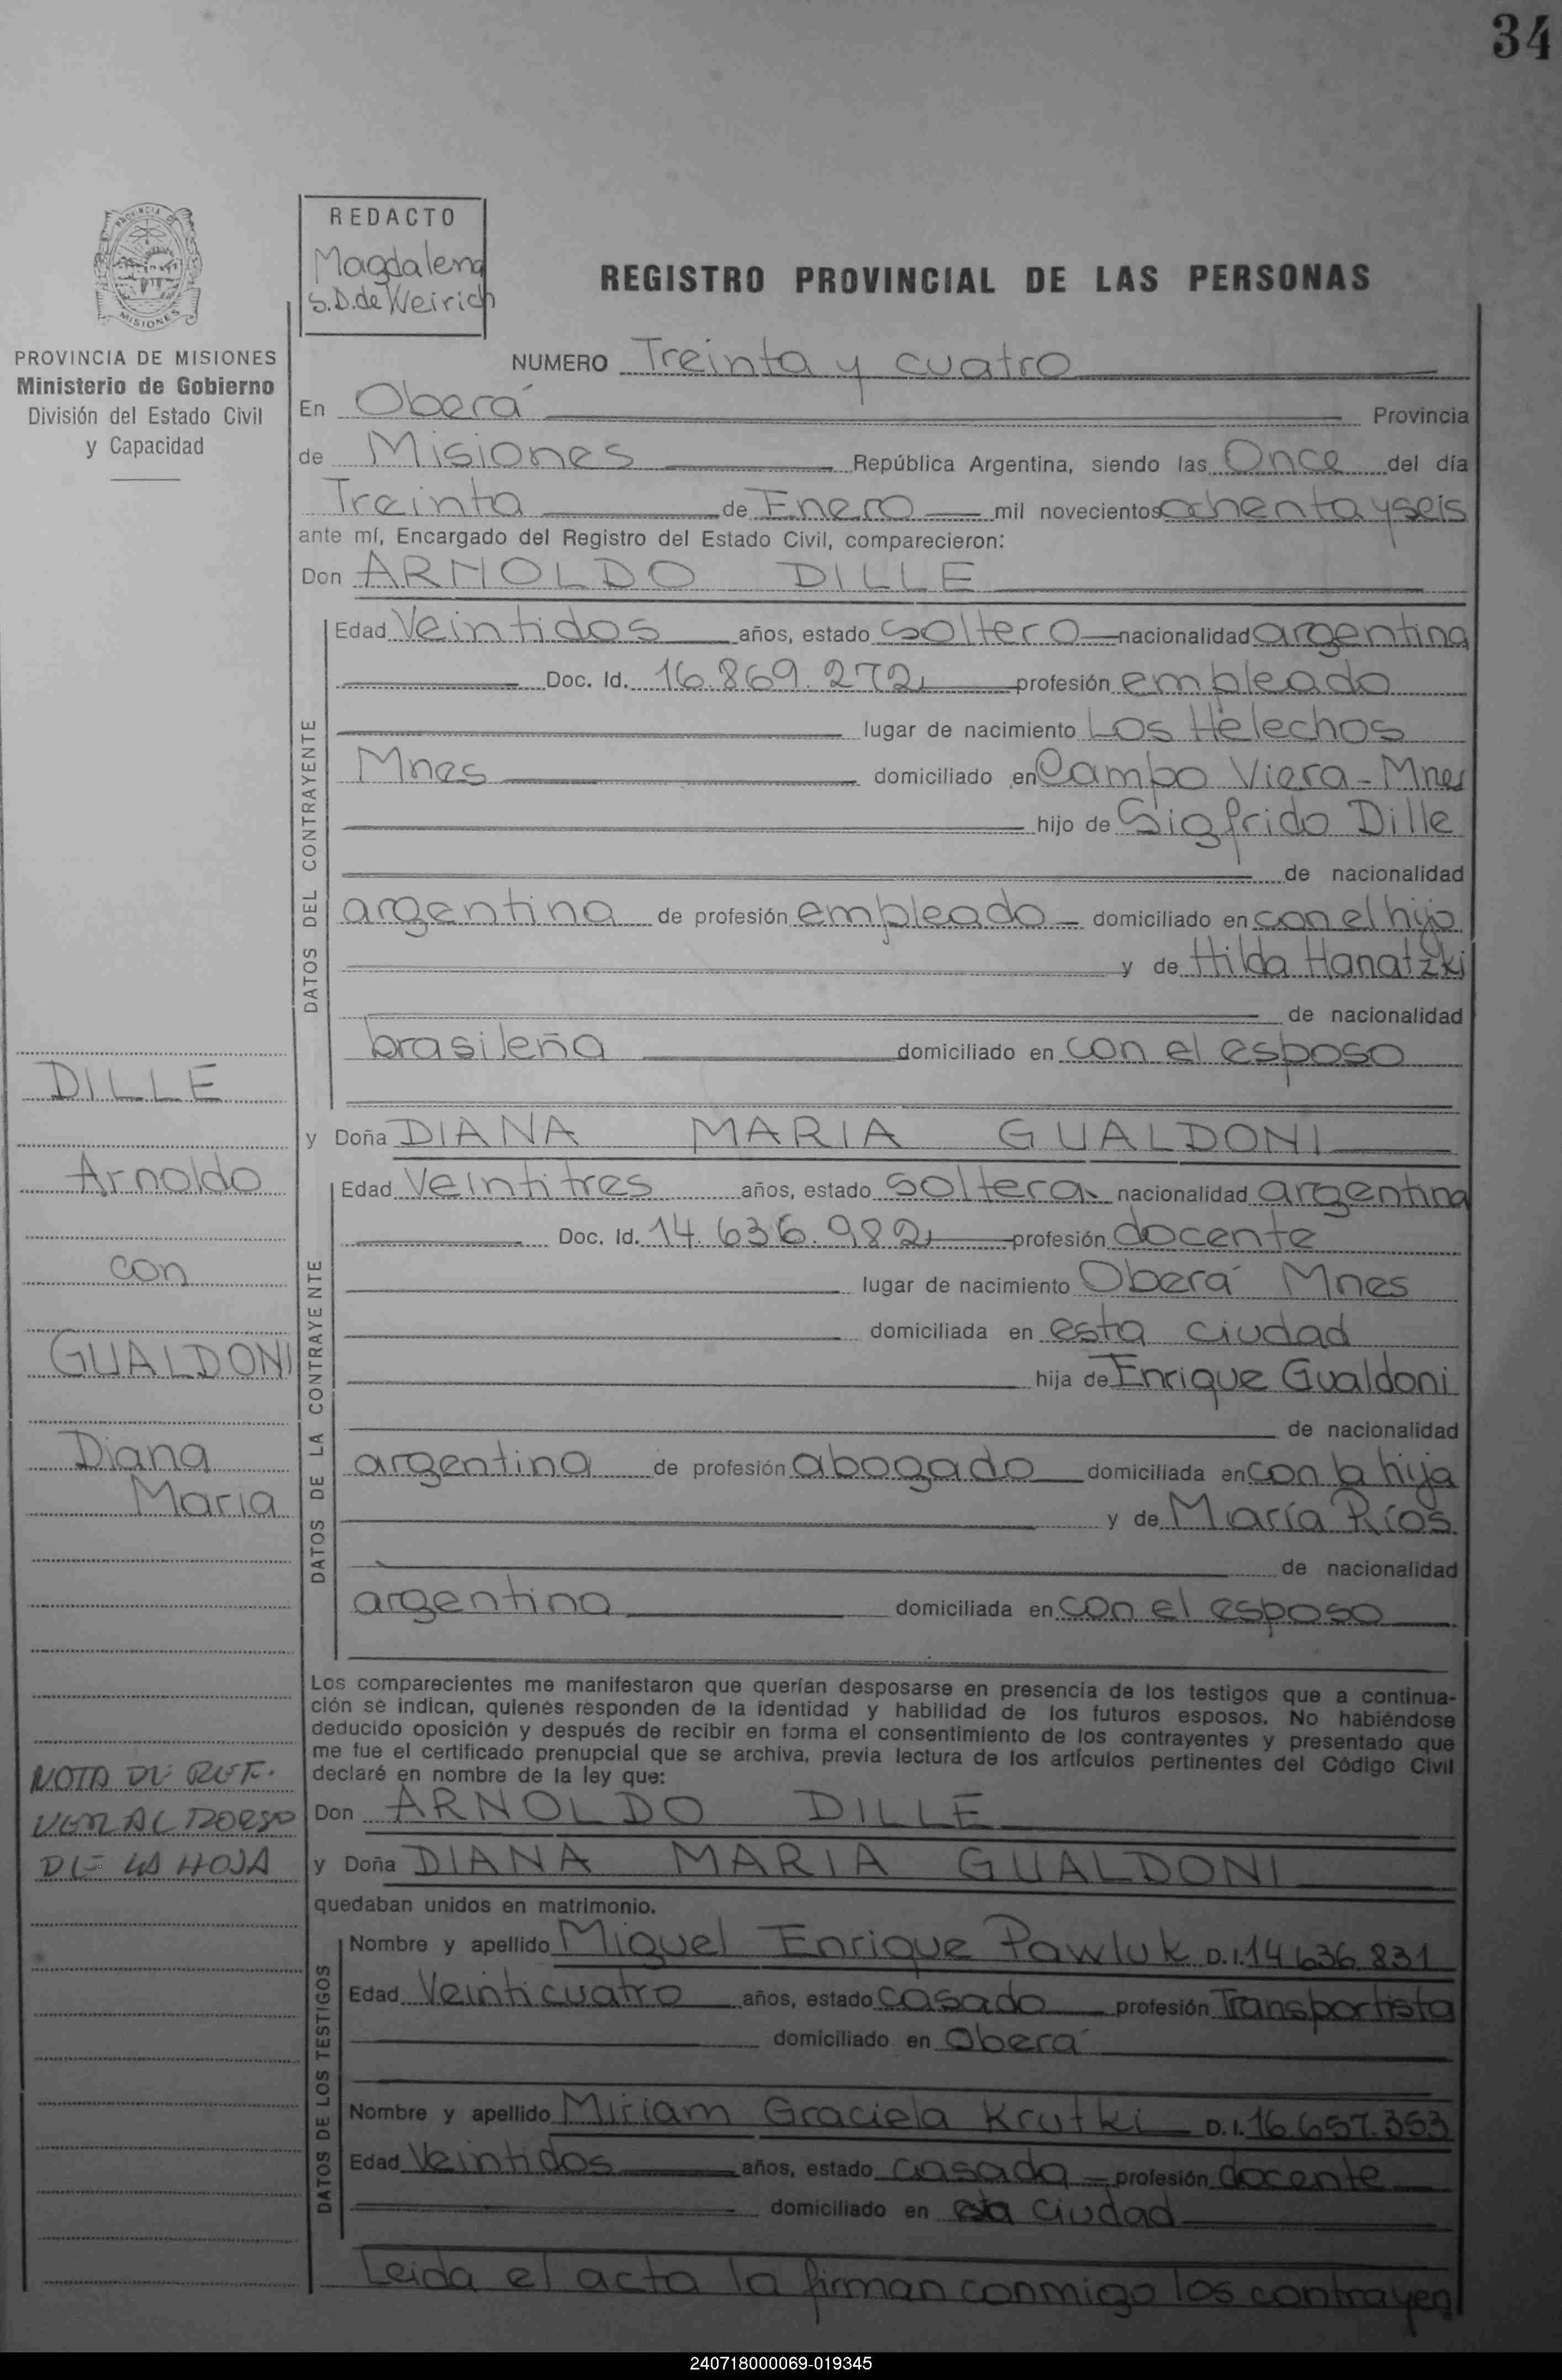 34
REDACTO
Magdalena
S.D. de Weirich
REGISTRO PROVINCIAL DE LAS PERSONAS
PROVINCIA DE MISIONES
Ministerio de Gobierno
División del Estado Civil
y Capacidad
NUMERO Treinta y cuatro
En Oberá Provincia
de Misiones República Argentina, siendo las Once del día
Treinta de Enero mil novecientos ochenta y seis
ante mí, Encargado del Registro del Estado Civil, comparecieron:
Don ARNOLDO DILLE
DATOS DEL CONTRAYENTE
Edad Veintidos años, estado soltero nacionalidad argentina
Doc. Id. 16.869.272 profesión empleado
lugar de nacimiento Los Helechos
Mnes domiciliado en Campo Viera - Mnes
hijo de Sigfrido Dille
de nacionalidad
argentina de profesión empleado domiciliado en con el hijo
y de Hilda Hanatzki
de nacionalidad
brasileña domiciliado en con el esposo
y Doña DIANA MARIA GUALDONI
DATOS DE LA CONTRAYENTE
Edad Veintitres años, estado soltera nacionalidad argentina
Doc. Id. 14.636.982 profesión docente
lugar de nacimiento Oberá Mnes
domiciliada en esta ciudad
hija de Enrique Gualdoni
de nacionalidad
argentina de profesión abogado domiciliada en con la hija
y de María Ríos
de nacionalidad
argentina domiciliada en con el esposo
DILLE
Arnoldo
con
GUALDONI
Diana
Maria
NOTA DE REF.
VER AL DORSO
DE LA HOJA
Los comparecientes me manifestaron que querían desposarse en presencia de los testigos que a continua-
ción se indican, quienes responden de la identidad y habilidad de los futuros esposos. No habiéndose
deducido oposición y después de recibir en forma el consentimiento de los contrayentes y presentado que
me fue el certificado prenupcial que se archiva, previa lectura de los artículos pertinentes del Código Civil
declaré en nombre de la ley que:
Don ARNOLDO DILLE
y Doña DIANA MARIA GUALDONI
quedaban unidos en matrimonio.
DATOS DE LOS TESTIGOS
Nombre y apellido Miguel Enrique Pawluk D.I. 14.636.831
Edad Veinticuatro años, estado casado profesión Transportista
domiciliado en Oberá
Nombre y apellido Miriam Graciela Krutki D.I. 16.657.353
Edad Veintidos años, estado casada profesión docente
domiciliado en esta ciudad
Leida el acta la firman conmigo los contrayen
240718000069-019345